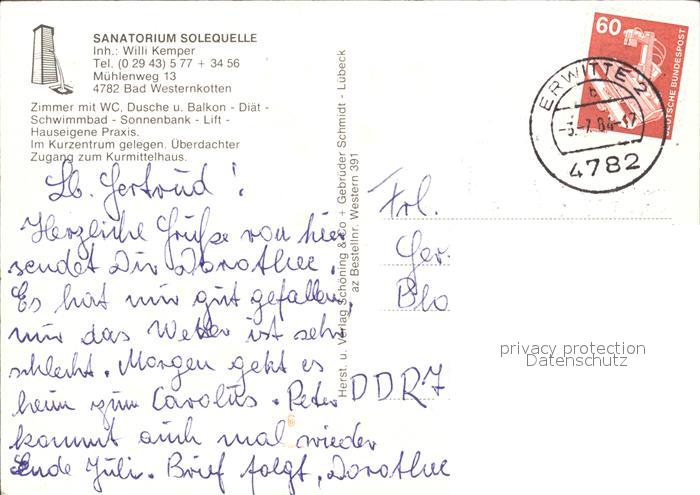 SANATORIUM SOLEQUELLE
Inh.: Willi Kemper
Tel. (0 29 43) 5 77 + 34 56
Mühlenweg 13
4782 Bad Westernkotten
Zimmer mit WC, Dusche u. Balkon - Diät -
Schwimmbad - Sonnenbank - Lift -
Hauseigene Praxis.
Im Kurzentrum gelegen. Überdachter
Zugang zum Kurmittelhaus.
Lb. Gertrud!
Herzliche Grüße von hier
sendet Dir Dorothee.
Es hat mir gut gefallen,
nur das Wetter ist sehr
schlecht. Morgen geht es
heim zum Carolus. Peter
kommt auch mal wieder
Ende Juli. Brief folgt, Dorothee
Herst. u. Verlag Schöning & Co + Gebrüder Schmidt - Lübeck
az Bestellnr. Western 391
60
DEUTSCHE BUNDESPOST
ERWITTE 2
b
-7.84-17
4782
Frl.
Ger.
Blo
DDR-7
privacy protection
Datenschutz